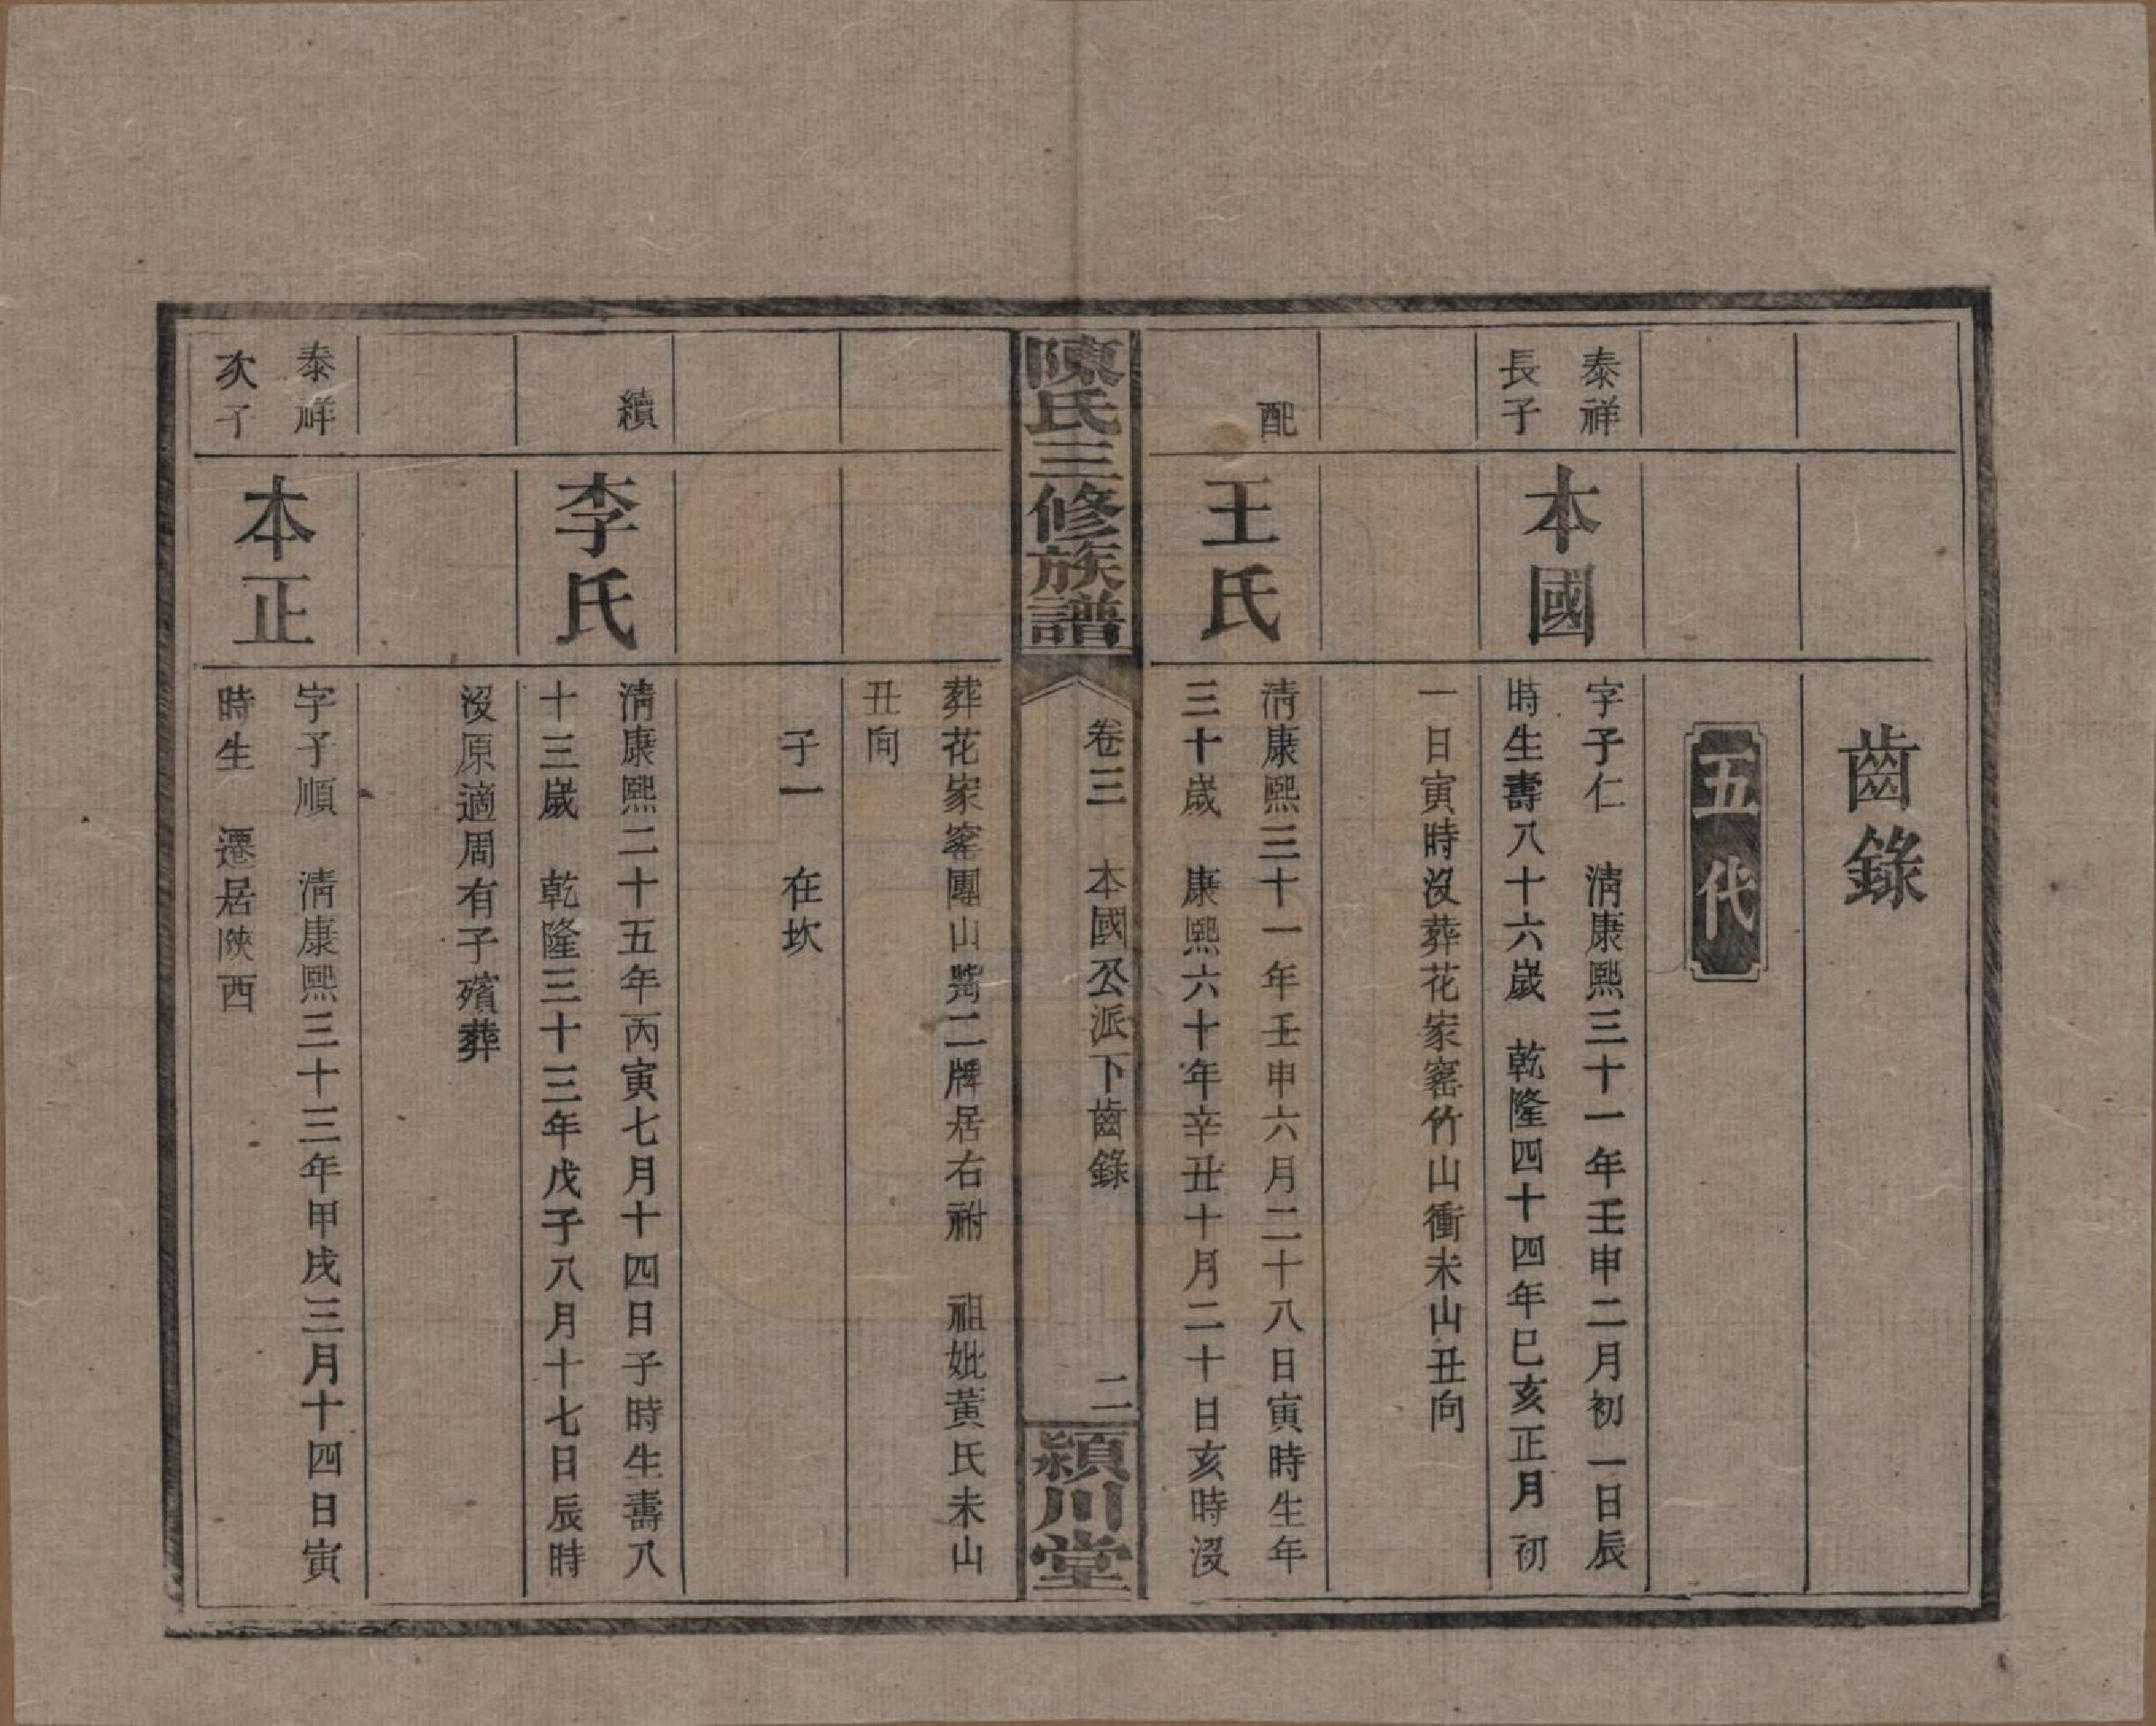 齒錄
五代
泰祥
長子
本國
字子仁　清康熙三十一年壬申二月初一日辰
時生壽八十六歲　乾隆四十四年巳亥正月初
一日寅時沒葬花家窰竹山衝未山丑向
配
王氏
清康熙三十一年壬申六月二十八日寅時生年
三十歲　康熙六十年辛丑十月二十日亥時沒
陳氏三修族譜
卷三　本國公派下齒錄
二
潁川堂
葬花家窰團山嘴二牌居右祔　祖妣黃氏未山
丑向
子一　在坎
續
李氏
清康熙二十五年丙寅七月十四日子時生壽八
十三歲　乾隆三十三年戊子八月十七日辰時
沒原適周有子殯葬
泰祥
次子
本正
字子順　清康熙三十三年甲戌三月十四日寅
時生　遷居陝西